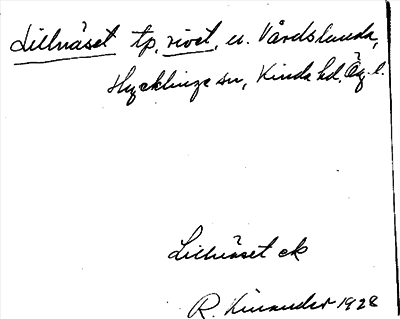 Lillnäset tp, rivet, u. Vårdslunda,
Hycklinge sn, Kinda hd. Ög. l.
Lillnäset ek
R. Kinander 1928